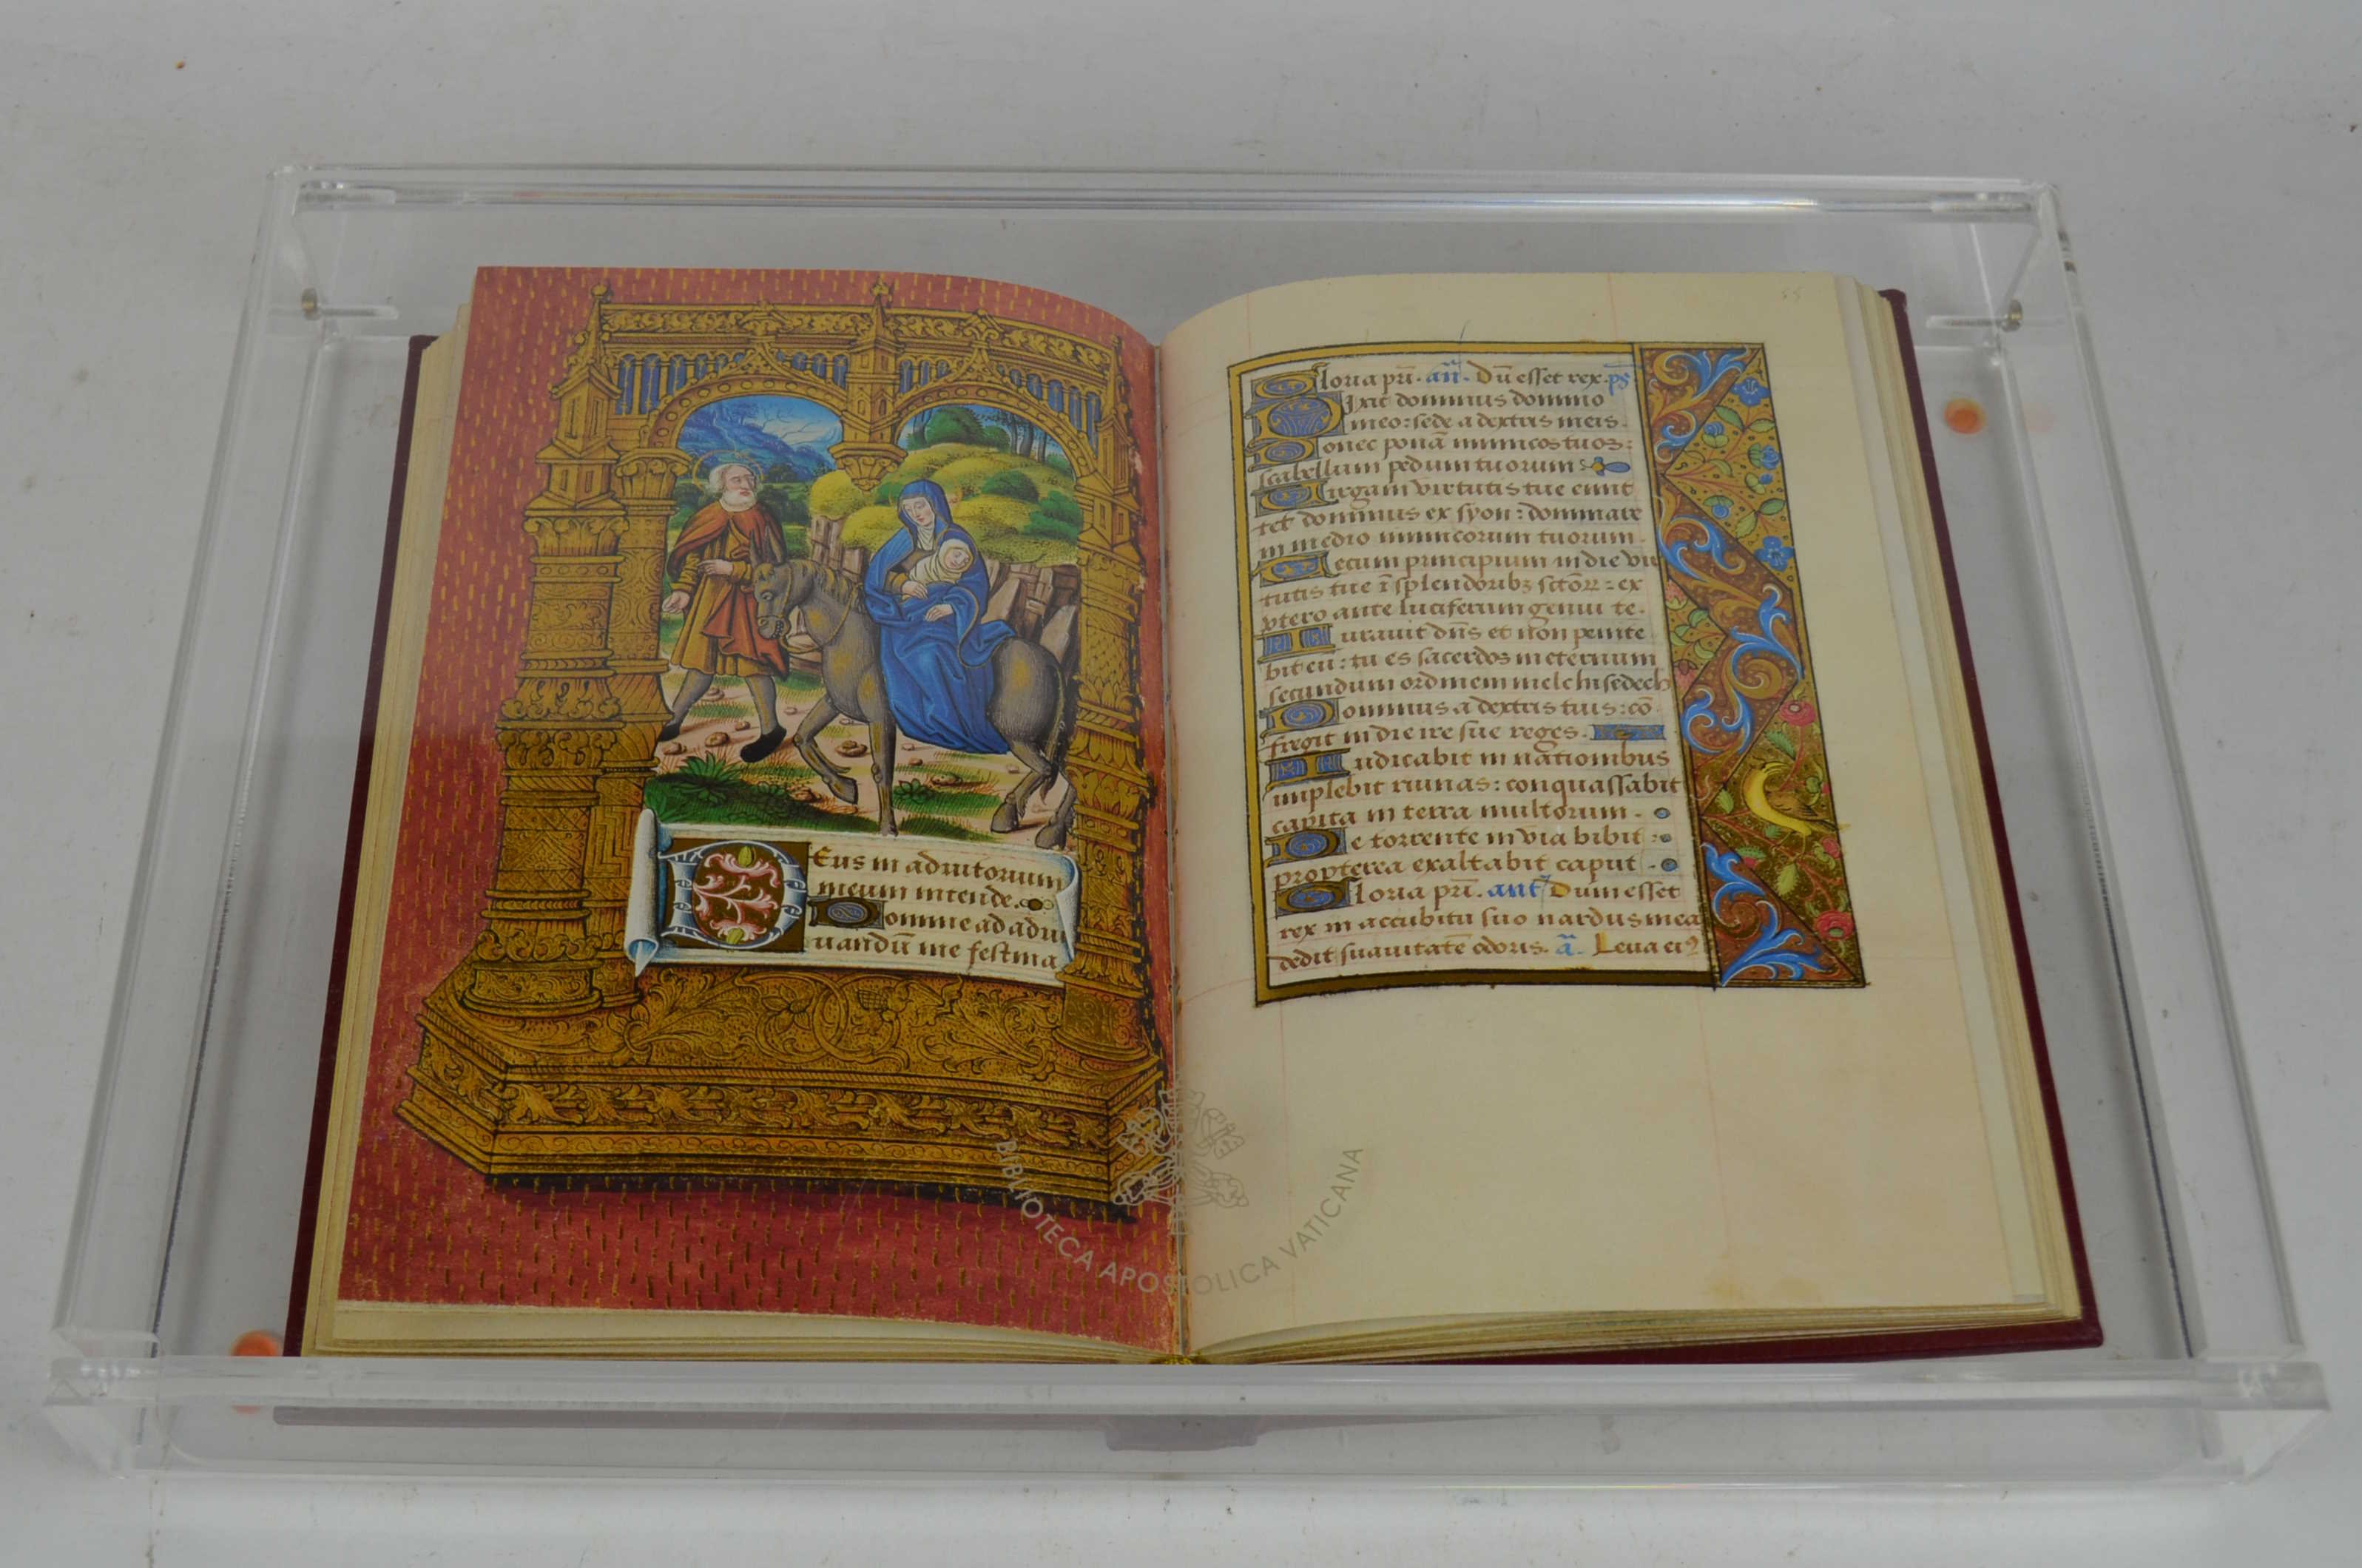 Eus in adiutorium
meum intende.
Domine ad adiu
uandū me festina
Gloria pri. añ. Dū esset rex. ps
Dixit dominus domino
meo: sede a dextris meis.
Donec ponā inimicos tuos:
scabellum pedum tuorum
Uirgam virtutis tue emit
tet dominus ex syon: dominare
in medio inimicorum tuorum.
Tecum principium in die vir
tutis tue ī splendoribꝫ sctōꝝ: ex
vtero ante luciferum genui te.
Iurauit dn̄s et non penite
bit eū: tu es sacerdos in eternum
secundum ordinem melchisedech
Dominus a dextris tuis: cō
fregit in die ire sue reges.
Iudicabit in nationibus
implebit ruinas: conquassabit
capita in terra multorum.
De torrente in via bibit:
propterea exaltabit caput.
Gloria pri. ant Dum esset
rex in accubitu suo nardus mea
dedit suauitatē odoris. a. Leua eiꝰ
55
BIBLIOTECA APOSTOLICA VATICANA